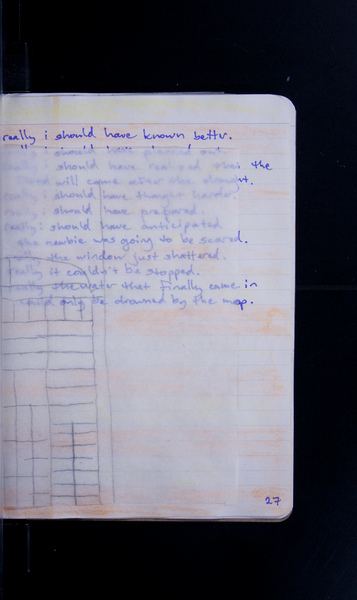 really i should have known bettr.
really i should have planned out
really i should have realized that the
flood will come after the drought.
really i should have thought harder.
really i should have prepared.
really i should have anticipated
the newbie was going to be scared.
really the window just shattered.
really it couldn't be stopped.
really the water that finally came in
could only be drowned by the mop.
27